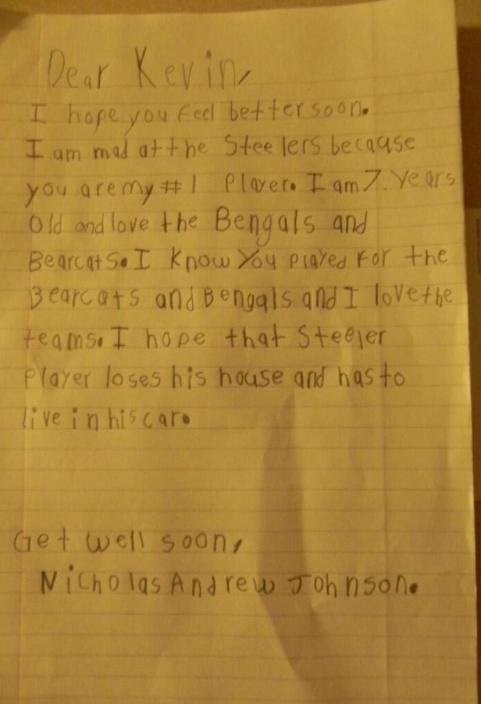 Dear Kevin,
I hope you feel better soon.
I am mad at the Steelers because
you are my #1 Player. I am 7. Years
Old and love the Bengals and
Bearcats. I Know You played For the
Bearcats and Bengals and I love the
teams. I hope that Steeler
Player loses his house and has to
live in his car.
Get well soon,
Nicholas Andrew Johnson.